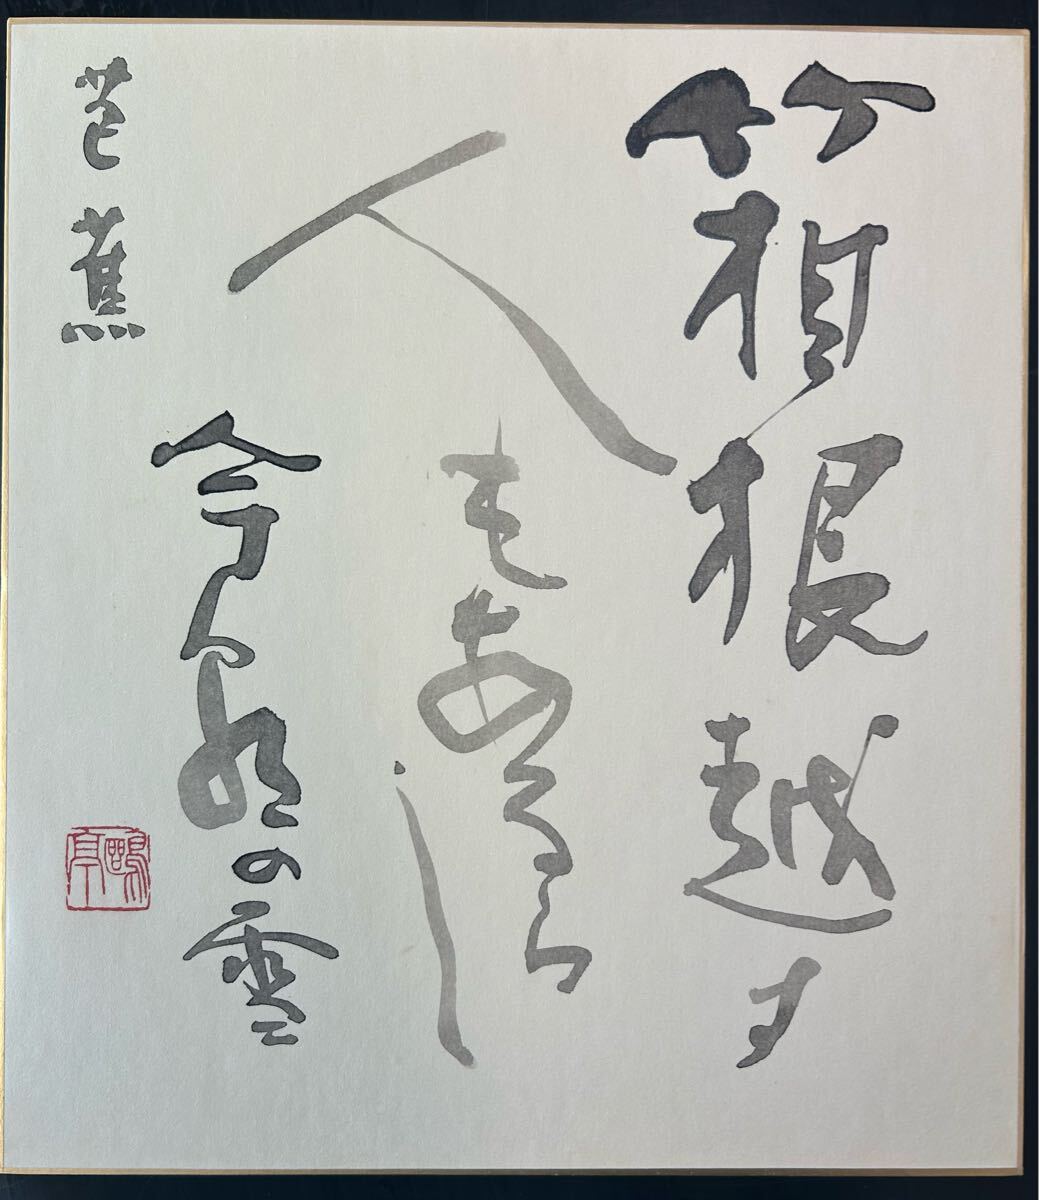 箱根越す
人もあるらし
今朝の雪
芭蕉
鷗亭